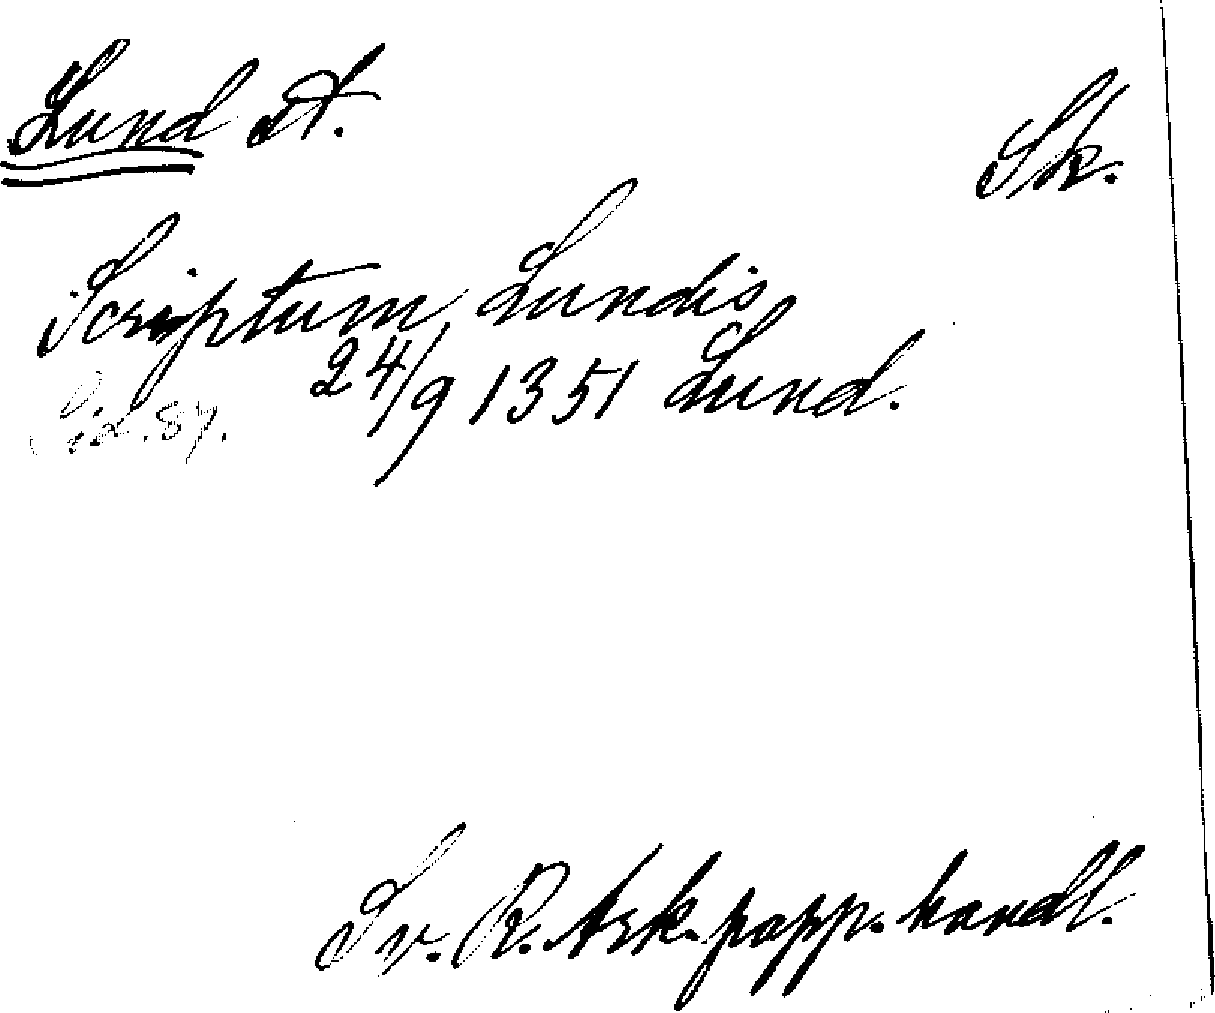 Lund st.
Sk.
Scriptum Lundis
24/9 1351 Lund.
Sid. 87.
Sv. R. Ark. papp. handl.